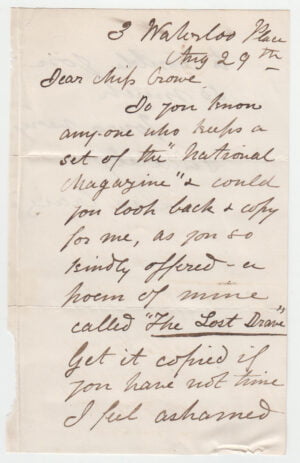 3 Waterloo Place
Aug 29th
Dear Miss Crowe
Do you know
any-one who keeps a
set of the "National
Magazine" & could
you look back & copy
for me, as you so
kindly offered - a
poem of mine
called "The Lost
Get it copied if
you have not time
I feel ashamed